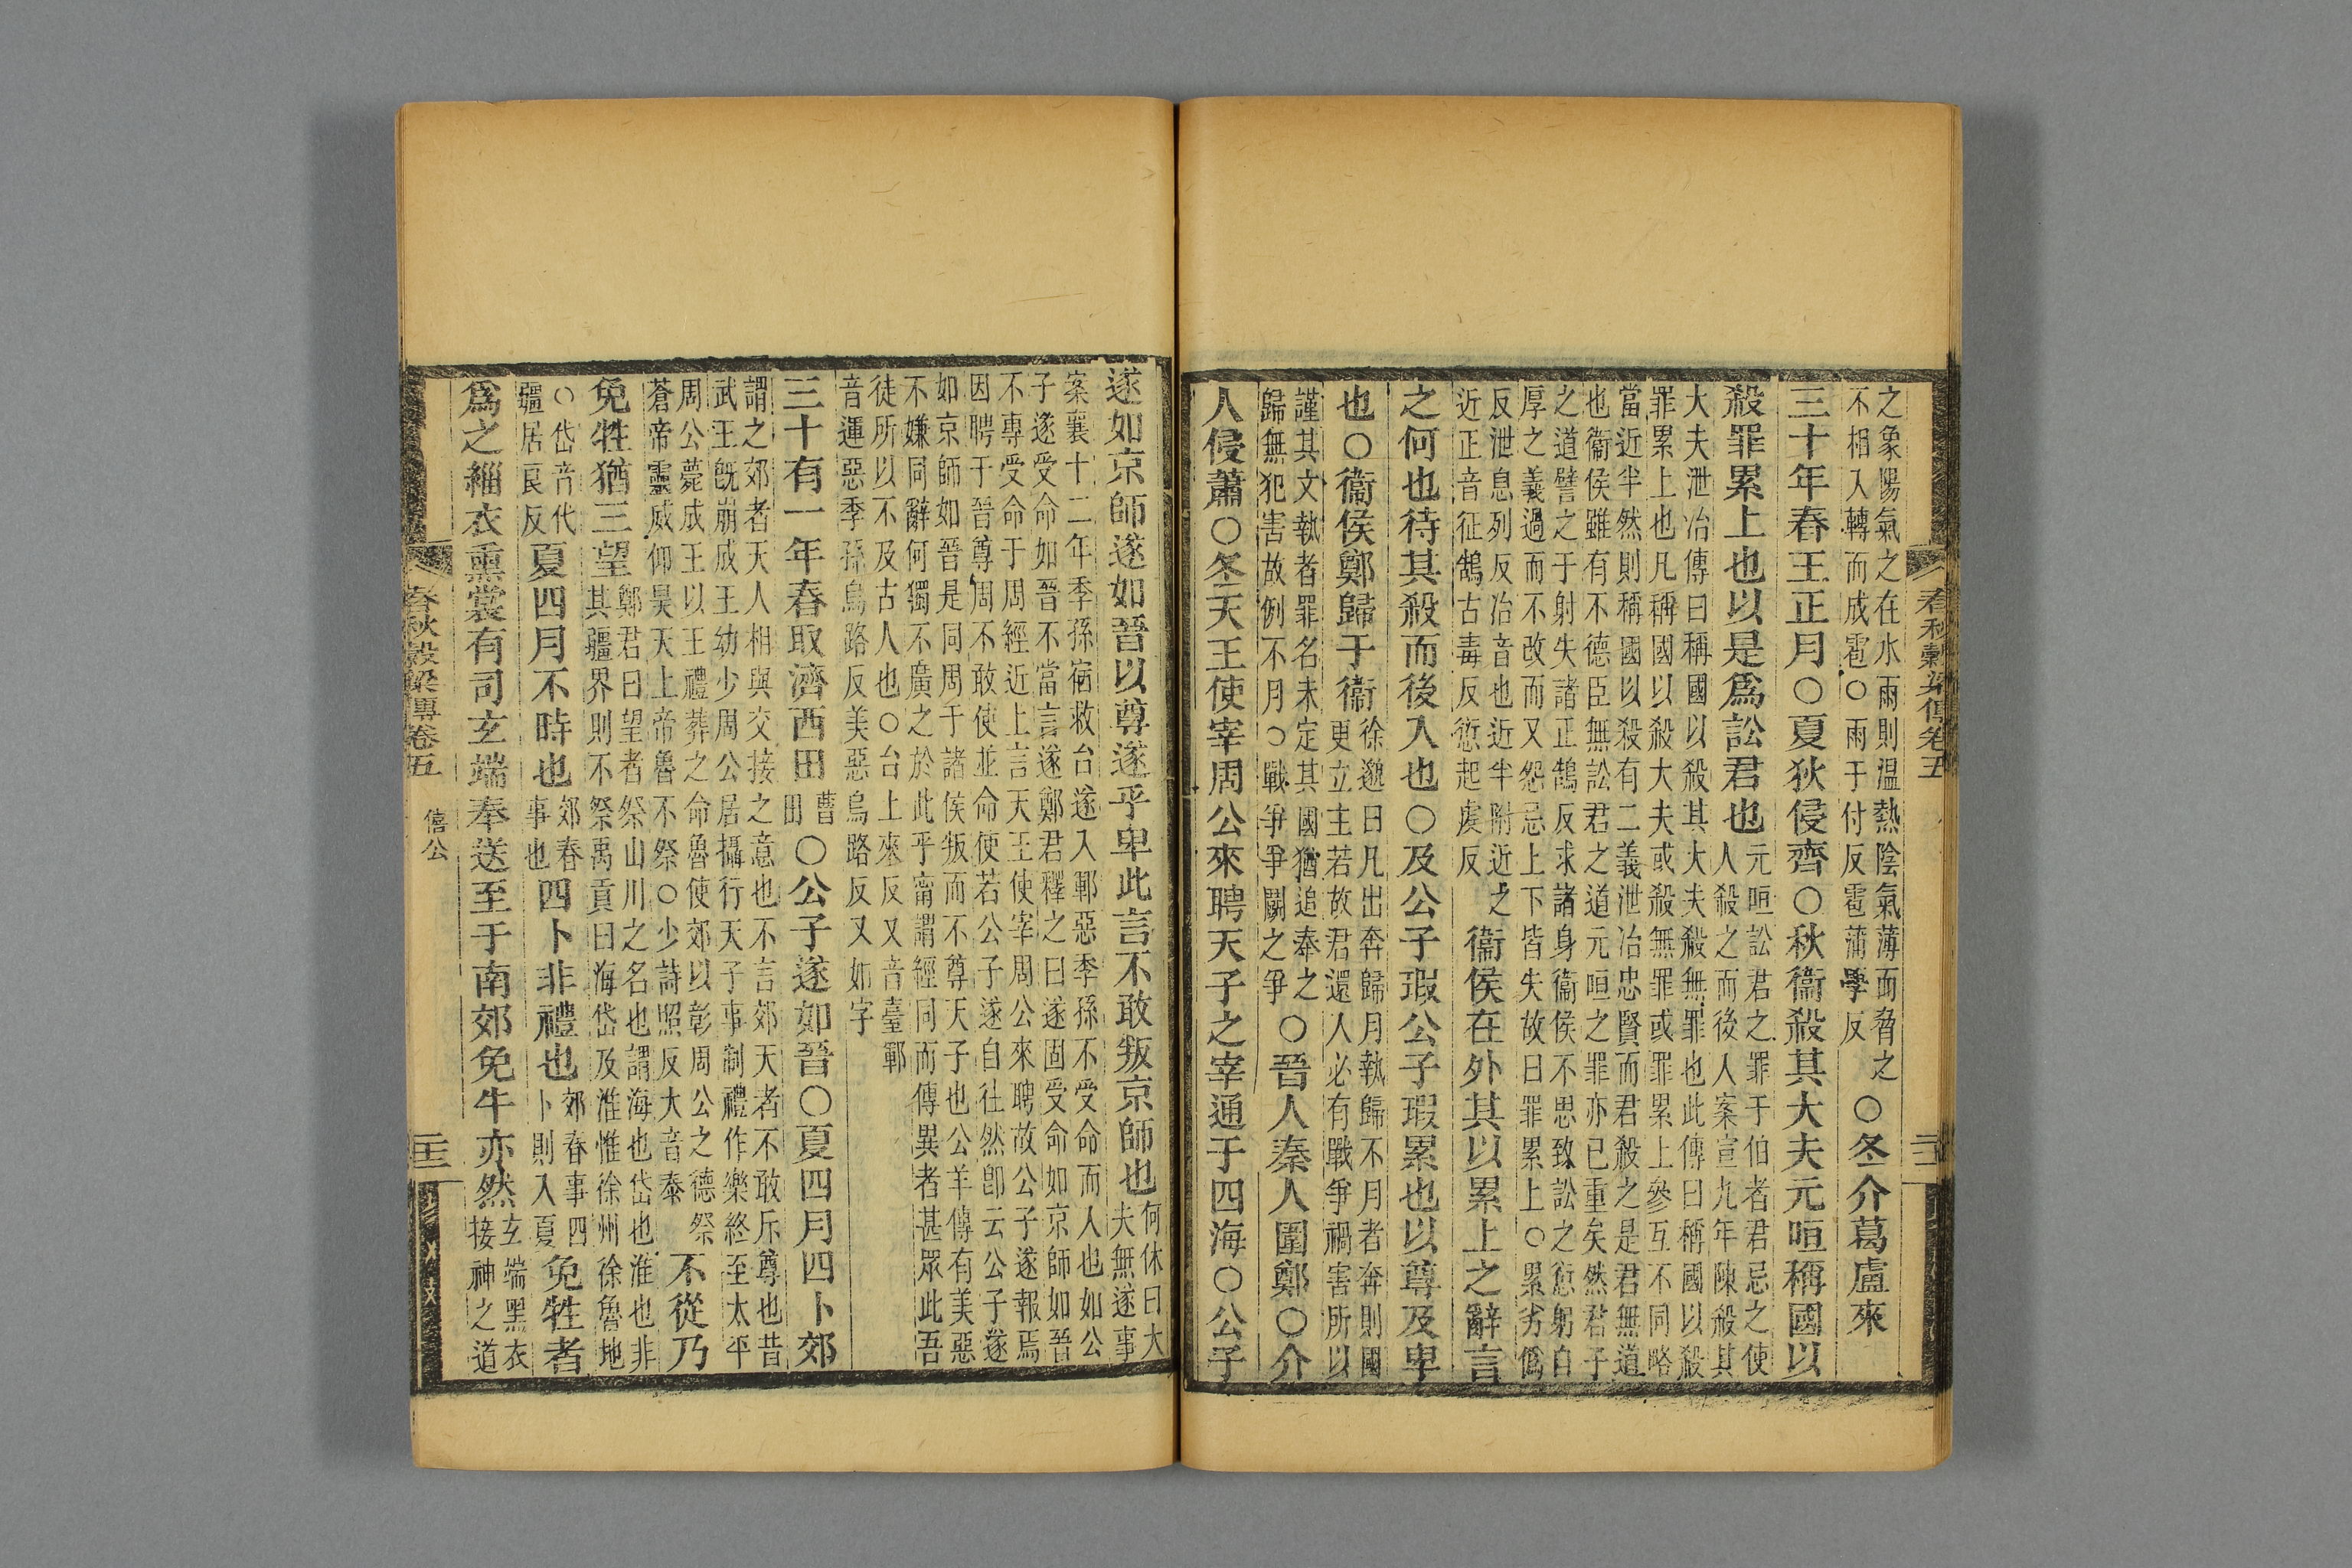 之象陽氣之在水雨則溫熱陰氣薄而脅之
不相入轉而成雹○雨于付反雹蒲學反
○冬介葛盧來
三十年春王正月○夏狄侵齊○秋衞殺其大夫元咺稱國以
殺罪累上也以是爲訟君也
元咺訟君之罪于伯者君忌之使
人殺之而後入案宣九年陳殺其
大夫泄冶傳曰稱國以殺其大夫殺無罪也此傳曰稱國以殺
罪累上也凡稱國以殺大夫或殺無罪或罪累上參互不同略
當近半然則稱國以殺有二義泄冶忠賢而君殺之是君無道
也衞侯雖有不德臣無訟君之道元咺之罪亦已重矣然君子
之道譬之于射失諸正鵠反求諸身衞侯不思致訟之愆躬自
厚之義過而不改而又怨忌上下皆失故曰罪累上○累劣僞
反泄息列反冶音也近半附近之
近正音征鵠古毒反愆起虔反
衞侯在外其以累上之辭言
之何也待其殺而後入也○及公子瑕公子瑕累也以尊及卑
也○衞侯鄭歸于衞
徐邈曰凡出奔歸月執歸不月者奔則國
更立主若故君還人必有戰爭禍害所以
謹其文執者罪名未定其國猶追奉之
歸無犯害故例不月○戰爭爭鬭之爭
○晉人秦人圍鄭○介
人侵蕭○冬天王使宰周公來聘天子之宰通于四海○公子
遂如京師遂如晉以尊遂乎卑此言不敢叛京師也
何休曰大
夫無遂事
案襄十二年季孫宿救台遂入鄆惡季孫不受命而入也如公
子遂受命如晉不當言遂鄭君釋之曰遂固受命如京師如晉
不專受命于周經近上言天王使宰周公來聘故公子遂報焉
因聘于晉尊周不敢使並命使若公子遂自往然卽云公子遂
如京師如晉是同周于諸侯叛而不尊天子也公羊傳有美惡
不嫌同辭何獨不廣之於此乎甯謂經同而傳異者甚眾此吾
徒所以不及古人也○台上來反又音臺鄆
音運惡季孫烏路反美惡烏路反又如字
三十有一年春取濟西田
曹
田
○公子遂如晉○夏四月四卜郊
謂之郊者天人相與交接之意也不言郊天者不敢斥尊也昔
武王旣崩成王幼少周公居攝行天子事制禮作樂終至太平
周公薨成王以王禮葬之命魯使郊以彰周公之德祭
蒼帝靈威仰昊天上帝魯不祭○少詩照反大音泰
不從乃
免牲猶三望
鄭君曰望者祭山川之名也謂海也岱也淮也非
其疆界則不祭禹貢曰海岱及淮惟徐州徐魯地
○岱音代
疆居良反
夏四月不時也
郊春
事也
四卜非禮也
郊春事四
卜則入夏
免牲者
爲之緇衣熏裳有司玄端奉送至于南郊免牛亦然
玄端黑衣
接神之道
春秋穀梁傳卷五
僖公